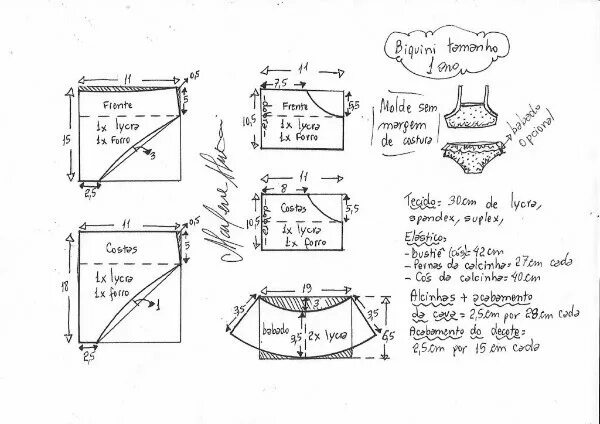 Biquini tamanho
1 ano
Molde sem
margem
de costura
babado
opcional
11
0,5
5
15
Frente
1x lycra
1x forro
3
2,5
11
0,5
5
18
Costas
1x lycra
1x forro
1
2,5
11
7,5
5,5
10,5
dobra
Frente
1x lycra
1x forro
11
8
5,5
10,5
dobra
Costas
1x lycra
1x forro
19
3,5
3
3,5
babado
3,5
2x lycra
6,5
Tecido= 30cm de lycra,
spandex, suplex,
Elástico=
- bustiê (cós)= 42cm
- Pernas da calcinha= 27cm cada
- Cós da calcinha= 40cm
Alcinhas + acabamento
da cava= 2,5cm por 28cm cada
Acabamento do decote=
2,5cm por 15cm cada